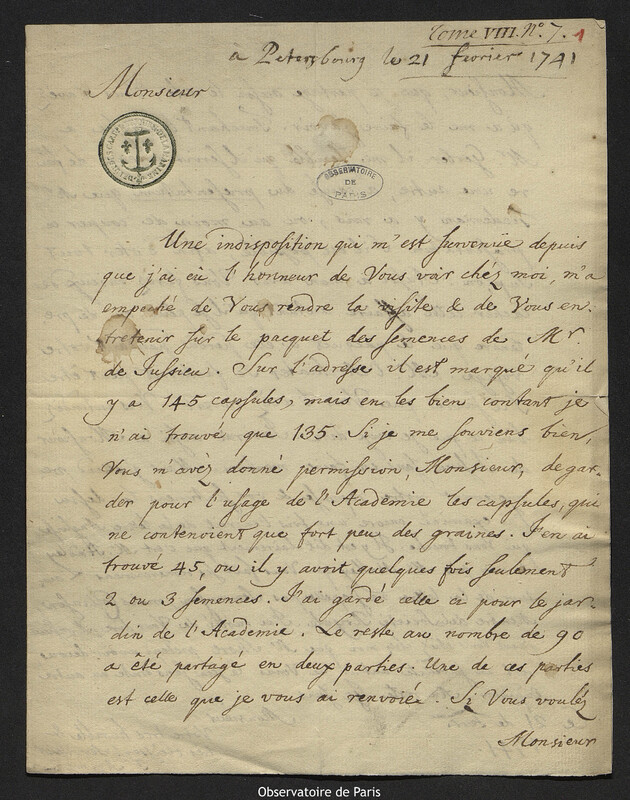 Tome VIII. N.º 7. 1
a Petersbourg le 21 fevrier 1741
Monsieur
OBSERVATOIRE
DE
PARIS
Une indisposition qui m'est survenuë depuis
que j'ai eü l'honneur de Vous voir chéz moi, m'a
empeché de Vous rendre la visite & de Vous en-
tretenir sur le pacquet des semences de Mr.
de Jussieu. Sur l'adresse il est marqué qu'il
y a 145 capsules, mais en les bien contant je
n'ai trouvé que 135. Si je me souviens bien,
Vous m'avéz donné permission, Monsieur, de gar-
der pour l'usage de l'Academie les capsules, qui
ne contenoient que fort peu des graines. J'en ai
trouvé 45, ou il y avoit quelques fois seulement
2 ou 3 semences. J'ai gardé celle ci pour le jar-
din de l'Academie. Le reste au nombre de 90
a êté partagé en deux parties. Une de ces parties
est celle que je vous ai renvoiée. Si Vous vouléz
Monsieur
Observatoire de Paris